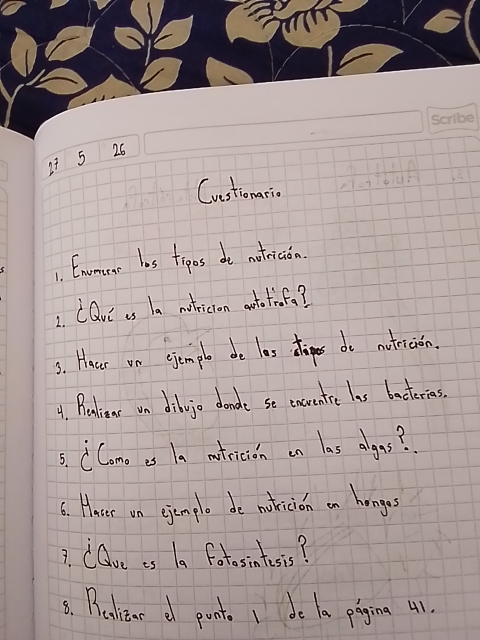 Scribe
27 5 26
Cuestionario
1. Enumerar los tipos de nutrición.
2. ¿Qué es la nutricion autótrofa?
3. Hacer un ejemplo de los tipos de nutrición.
4. Realizar un dibujo donde se encuentre las bacterias.
5. ¿Como es la nutrición en las algas?.
6. Hacer un ejemplo de nutrición en hongos
7. ¿Que es la fotosintesis?
8. Realizar el punto 1 de la página 41.